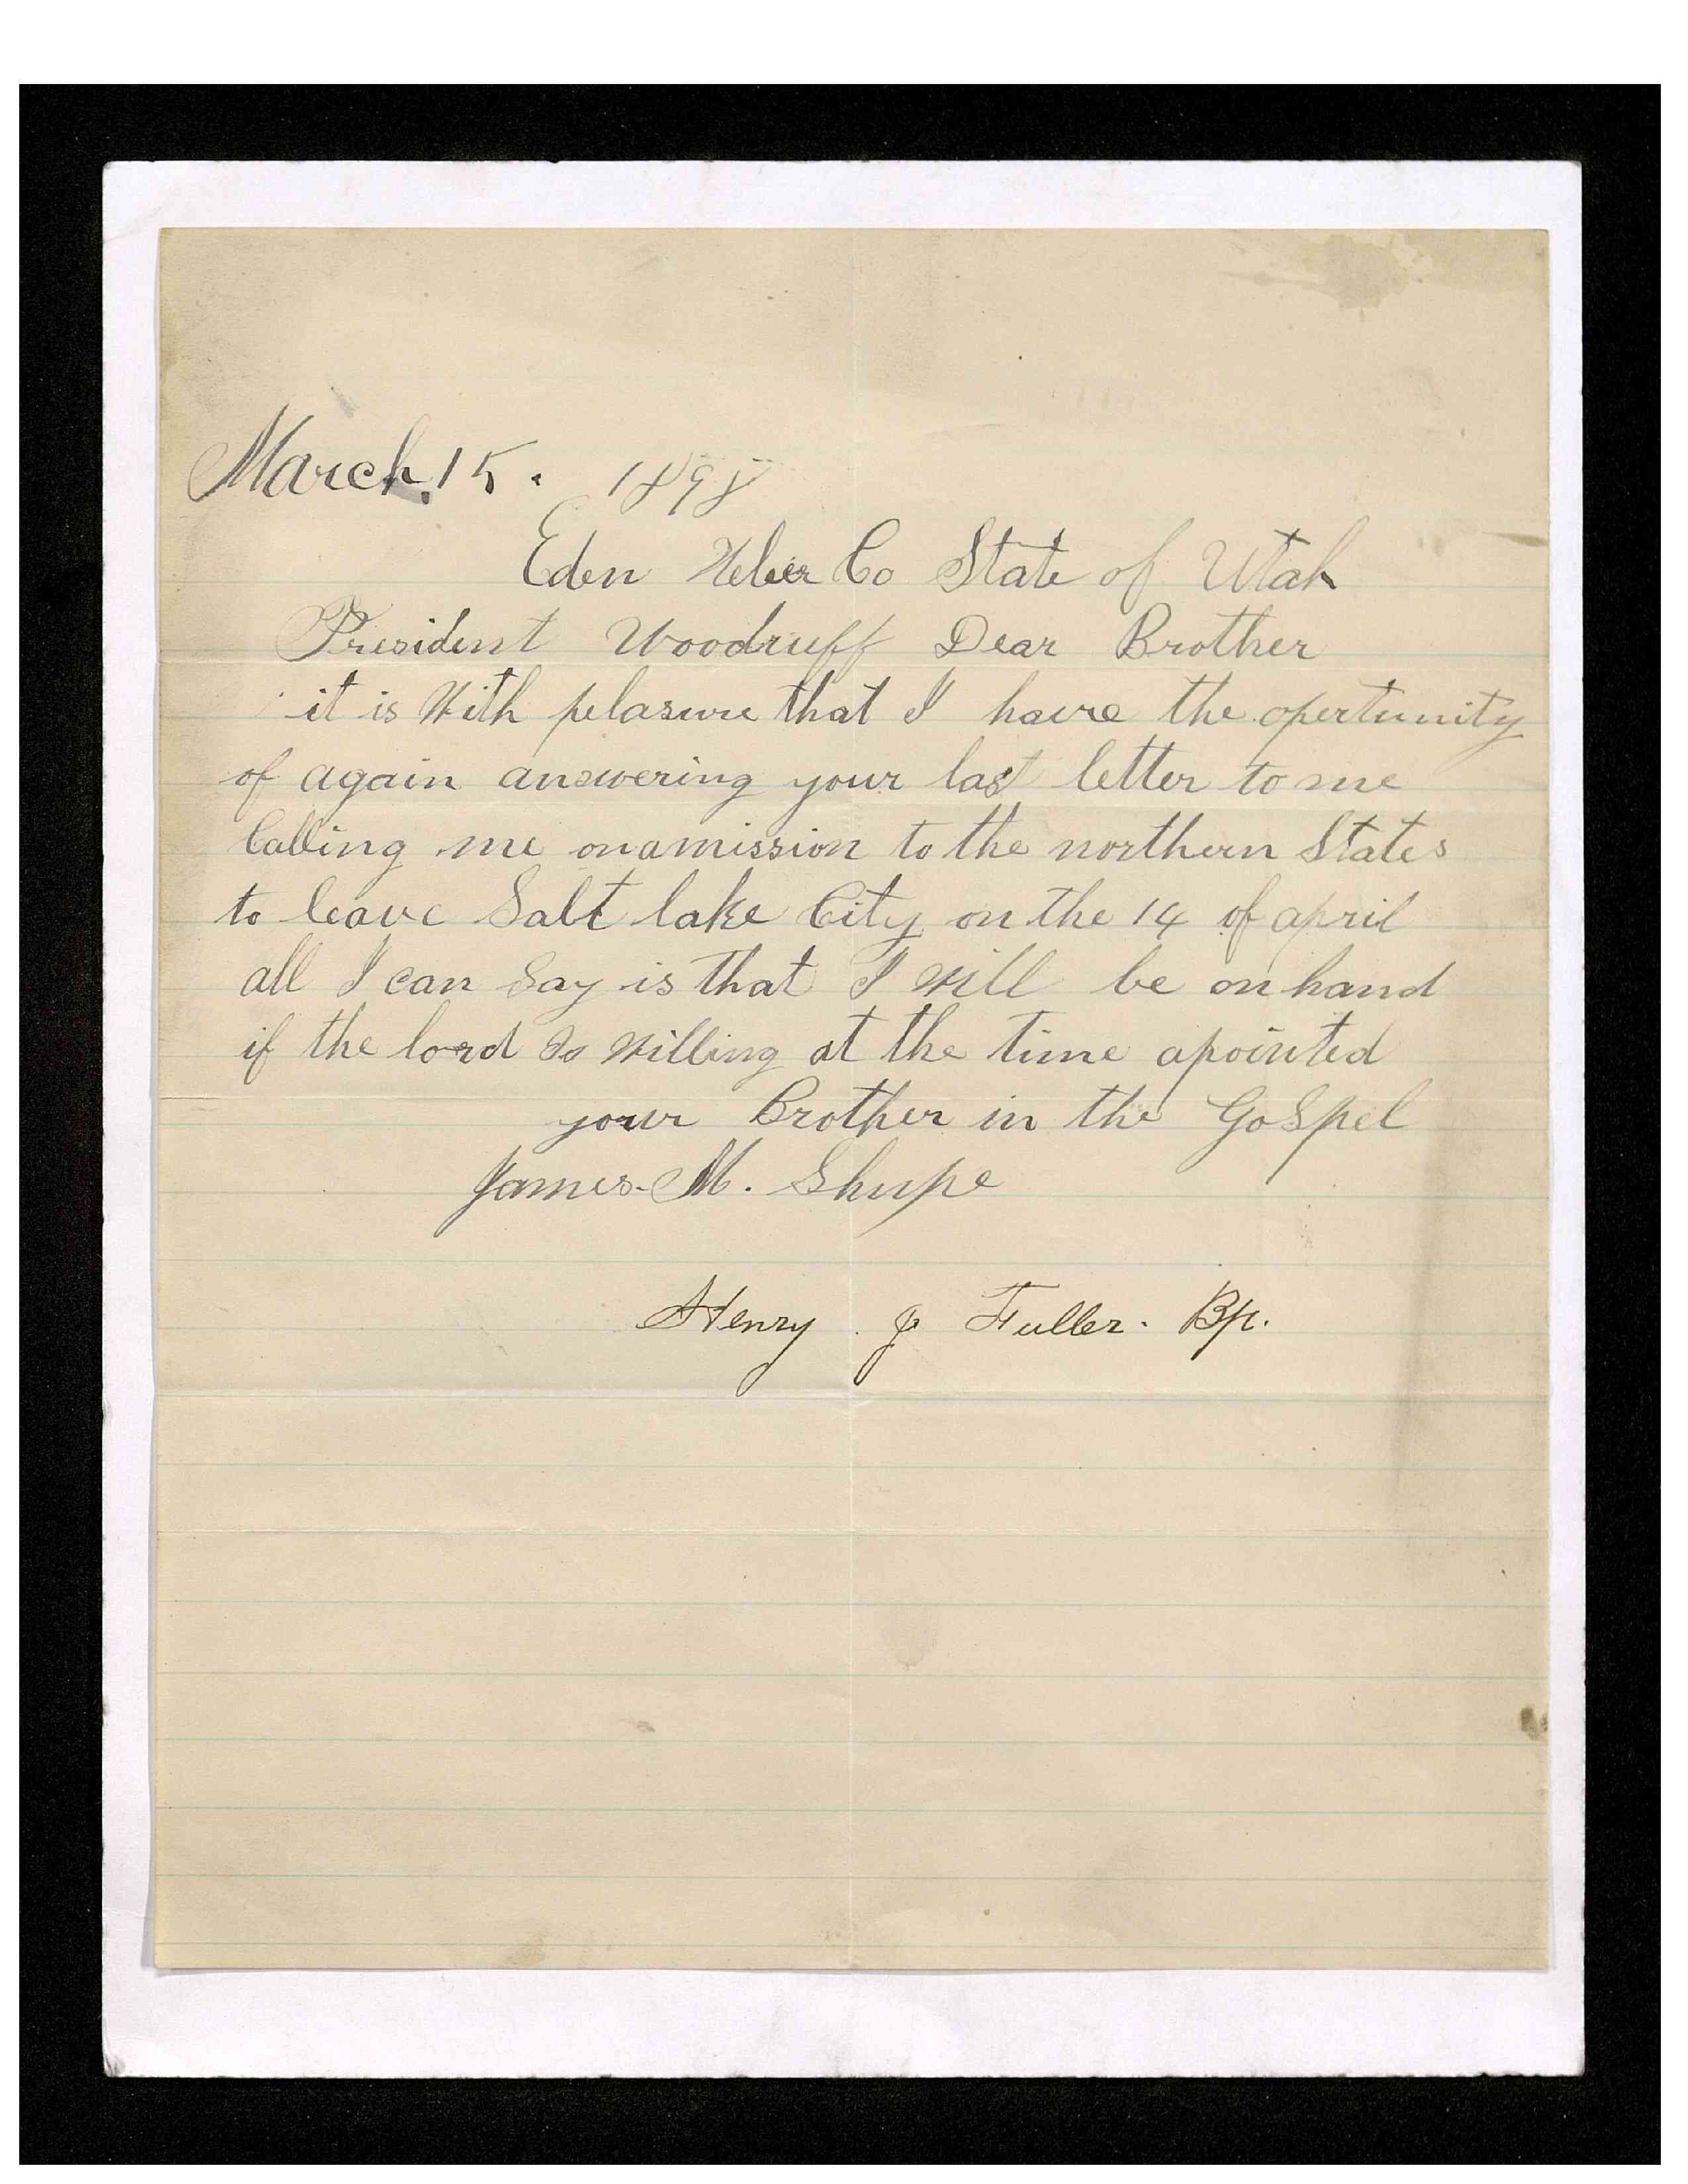 March. 15. 1898
Eden Weber Co State of Utah
President Woodruff Dear Brother
it is With pelasure that I have the opertunity
of again answering your last letter to me
Calling me on a mission to the northern States
to leave Salt lake City on the 14 of april
all I can Say is that I Will be on hand
if the lord is Willing at the time apointed
your Brother in the GoSpel
James. M. Shupe
Henry J Fuller. Bp.